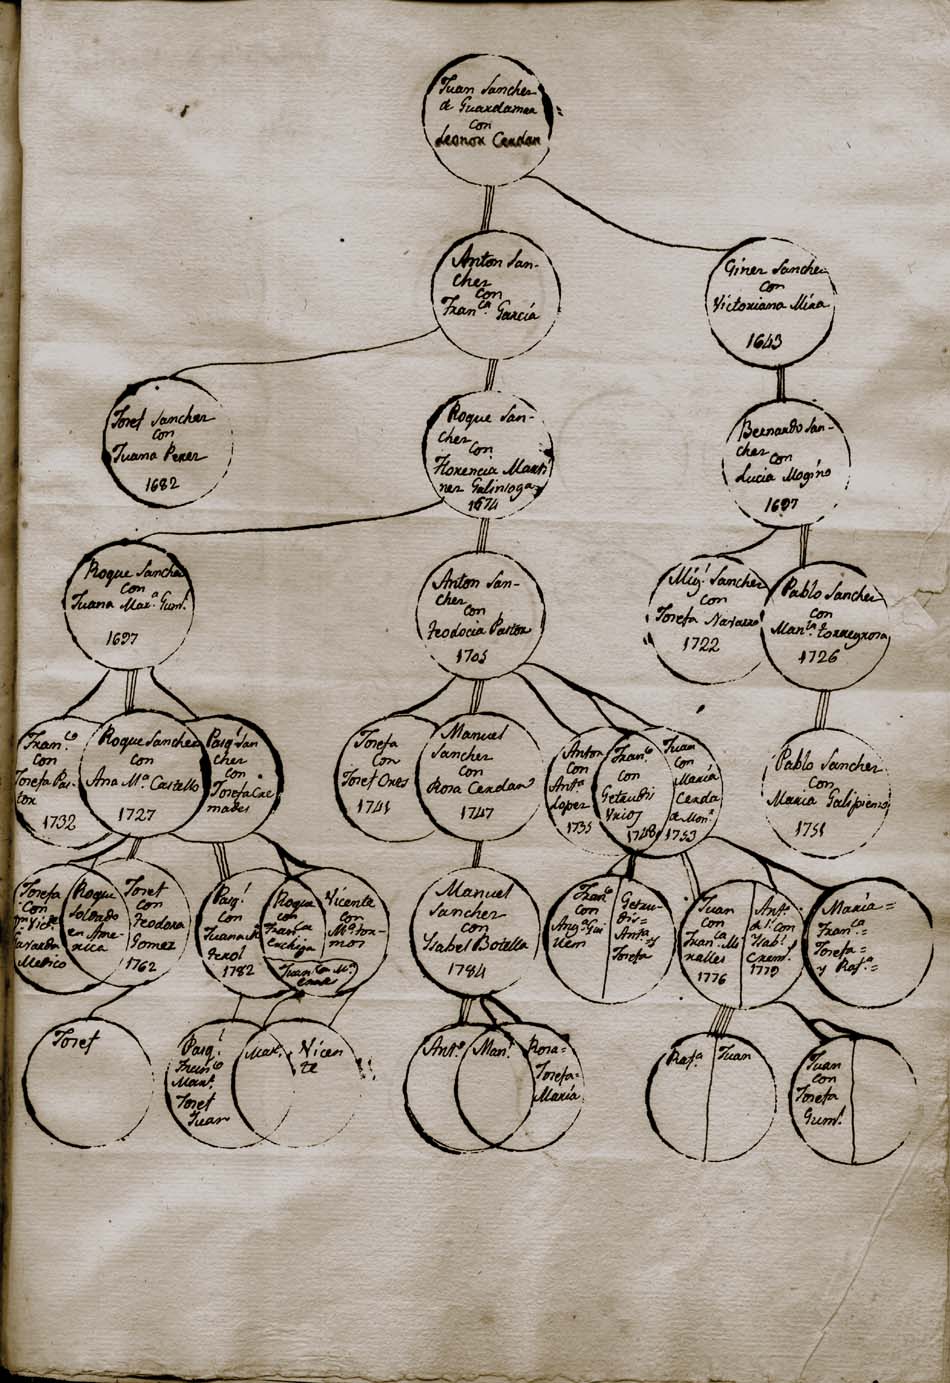 Juan Sanchez
de Guardamar
con
Leonor Cerdan
Anton San-
chez
con
Franca. Garcia
Giner Sanchez
con
Victoriana Mira
1643
Josef Sanchez
con
Juana Perez
1682
Roque San-
chez
con
Florencia Marti
nez Galinsoga
1674
Bernardo San-
chez
con
Lucia Mogino
1697
Roque Sanchez
con
Juana Mara. Guml.
1697
Anton San-
chez
con
Teodocia Pastor
1705
Migl. Sanchez
con
Josefa Navarro
1722
Pablo Sanchez
con
Manla. Torregrosa
1726
Franco.
con
Josefa Pas-
tor
1732
Roque Sanchez
con
Ana Ma. Castello
1727
Pasql. San
chez
con
Josefa Cre
mades
Josefa
con
Josef Ores
1745
Manuel
Sanchez
con
Rosa Cerdan
1747
Anton
con
Anta.
Lopez
1735
Franco.
con
Getrudis
Vrios
1748
Juan
con
Maria
Cerda
de Mon.
1753
Pablo Sanchez
con
Maria Galipienso
1751
Josefa
con
Medico
Roque
Soldado
en Ame-
rica
Josef
con
Teodora
Gomez
1762
Pasql.
con
Juana
Ferol
1782
Roque
con
Franca.
Lachija
Vicenta
con
Ma. Tor-
mos
Juan con Ma.
Manuel
Sanchez
con
Ysabel Botella
1784
Franco.
con
Anga. Gui
llem
Getru-
dis=
Anta. y
Josefa
Juan
con
Franca. Mi
ralles
1776
Anto.
con
Ysabl.
Creml.
1779
Maria=
Franca.=
Josefa=
y Rafa.=
Josef
Pasql.
Franco
Manl.
Josef
Juan
Man.
Vicen
te
Anto.
Manl.
Rosa=
Josefa=
Maria
Rafa.
Juan
Juan
con
Josefa
Guml.